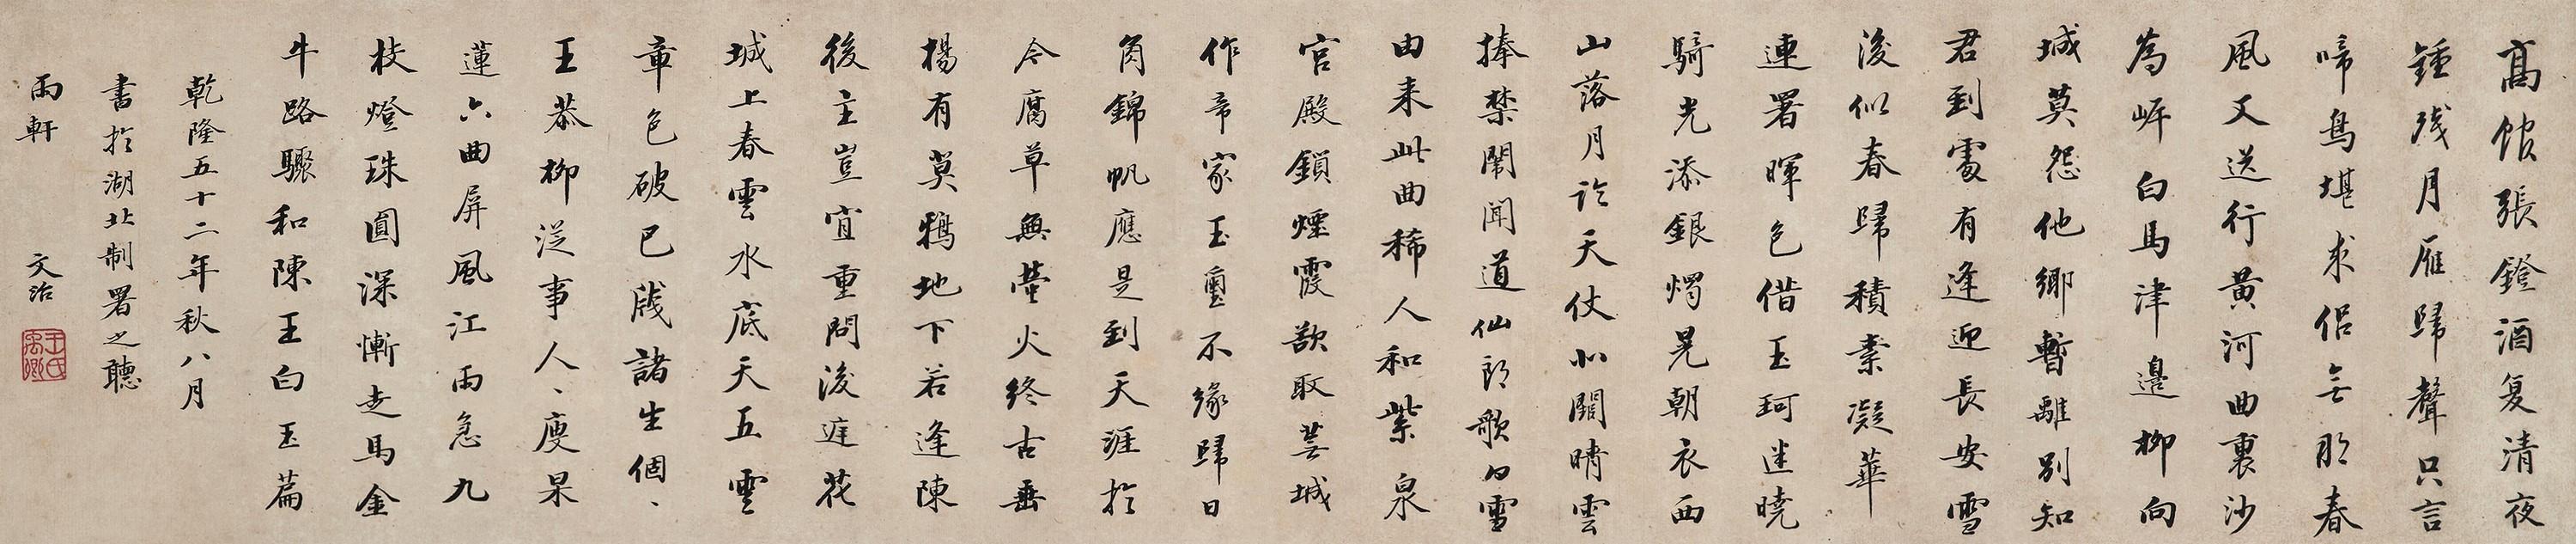 高館張鐙酒复清夜
鍾残月雁歸聲只言
啼鳥堪求侶無那春
風又送行黃河曲裏沙
為岸白馬津邊柳向
城莫怨他鄉暫離別知
君到處有逢迎長安雪
後似春歸積素凝華
連署暉色借玉珂迷曉
騎光添銀燭晃朝衣西
山落月詒天仗北闕晴雲
捧禁闈聞道仙郎歌白雪
由来此曲稀人和紫泉
宮殿鎖煙霞欲取蕪城
作帝家玉璽不緣歸日
角錦帆應是到天涯於
今腐草無螢火終古垂
楊有莫鴉地下若逢陳
後主豈宜重問後庭花
城上春雲水底天五雲
章色破巴牋諸生個、
王恭柳從事人、庾杲
蓮六曲屏風江雨急九
枝燈珠圓深慚走馬金
牛路驟和陳王白玉篇
乾隆五十二年秋八月
書於湖北制署之聽
雨軒 文治
王氏禹卿